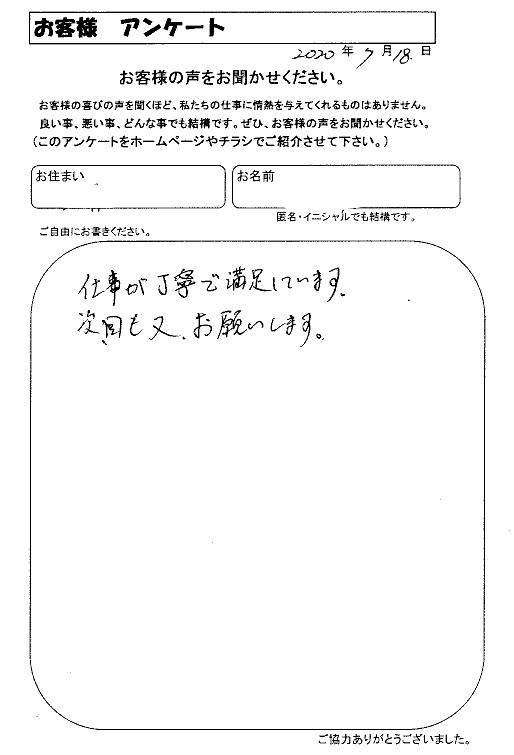 お客様 アンケート
2020 年 7 月 18. 日
お客様の声をお聞かせください。
お客様の喜びの声を聞くほど、私たちの仕事に情熱を与えてくれるものはありません。
良い事、悪い事、どんな事でも結構です。ぜひ、お客様の声をお聞かせください。
(このアンケートをホームページやチラシでご紹介させて下さい。)
お住まい
お名前
匿名・イニシャルでも結構です。
ご自由にお書きください。
仕事が丁寧で満足しています。
次回も又、お願いします。
ご協力ありがとうございました。